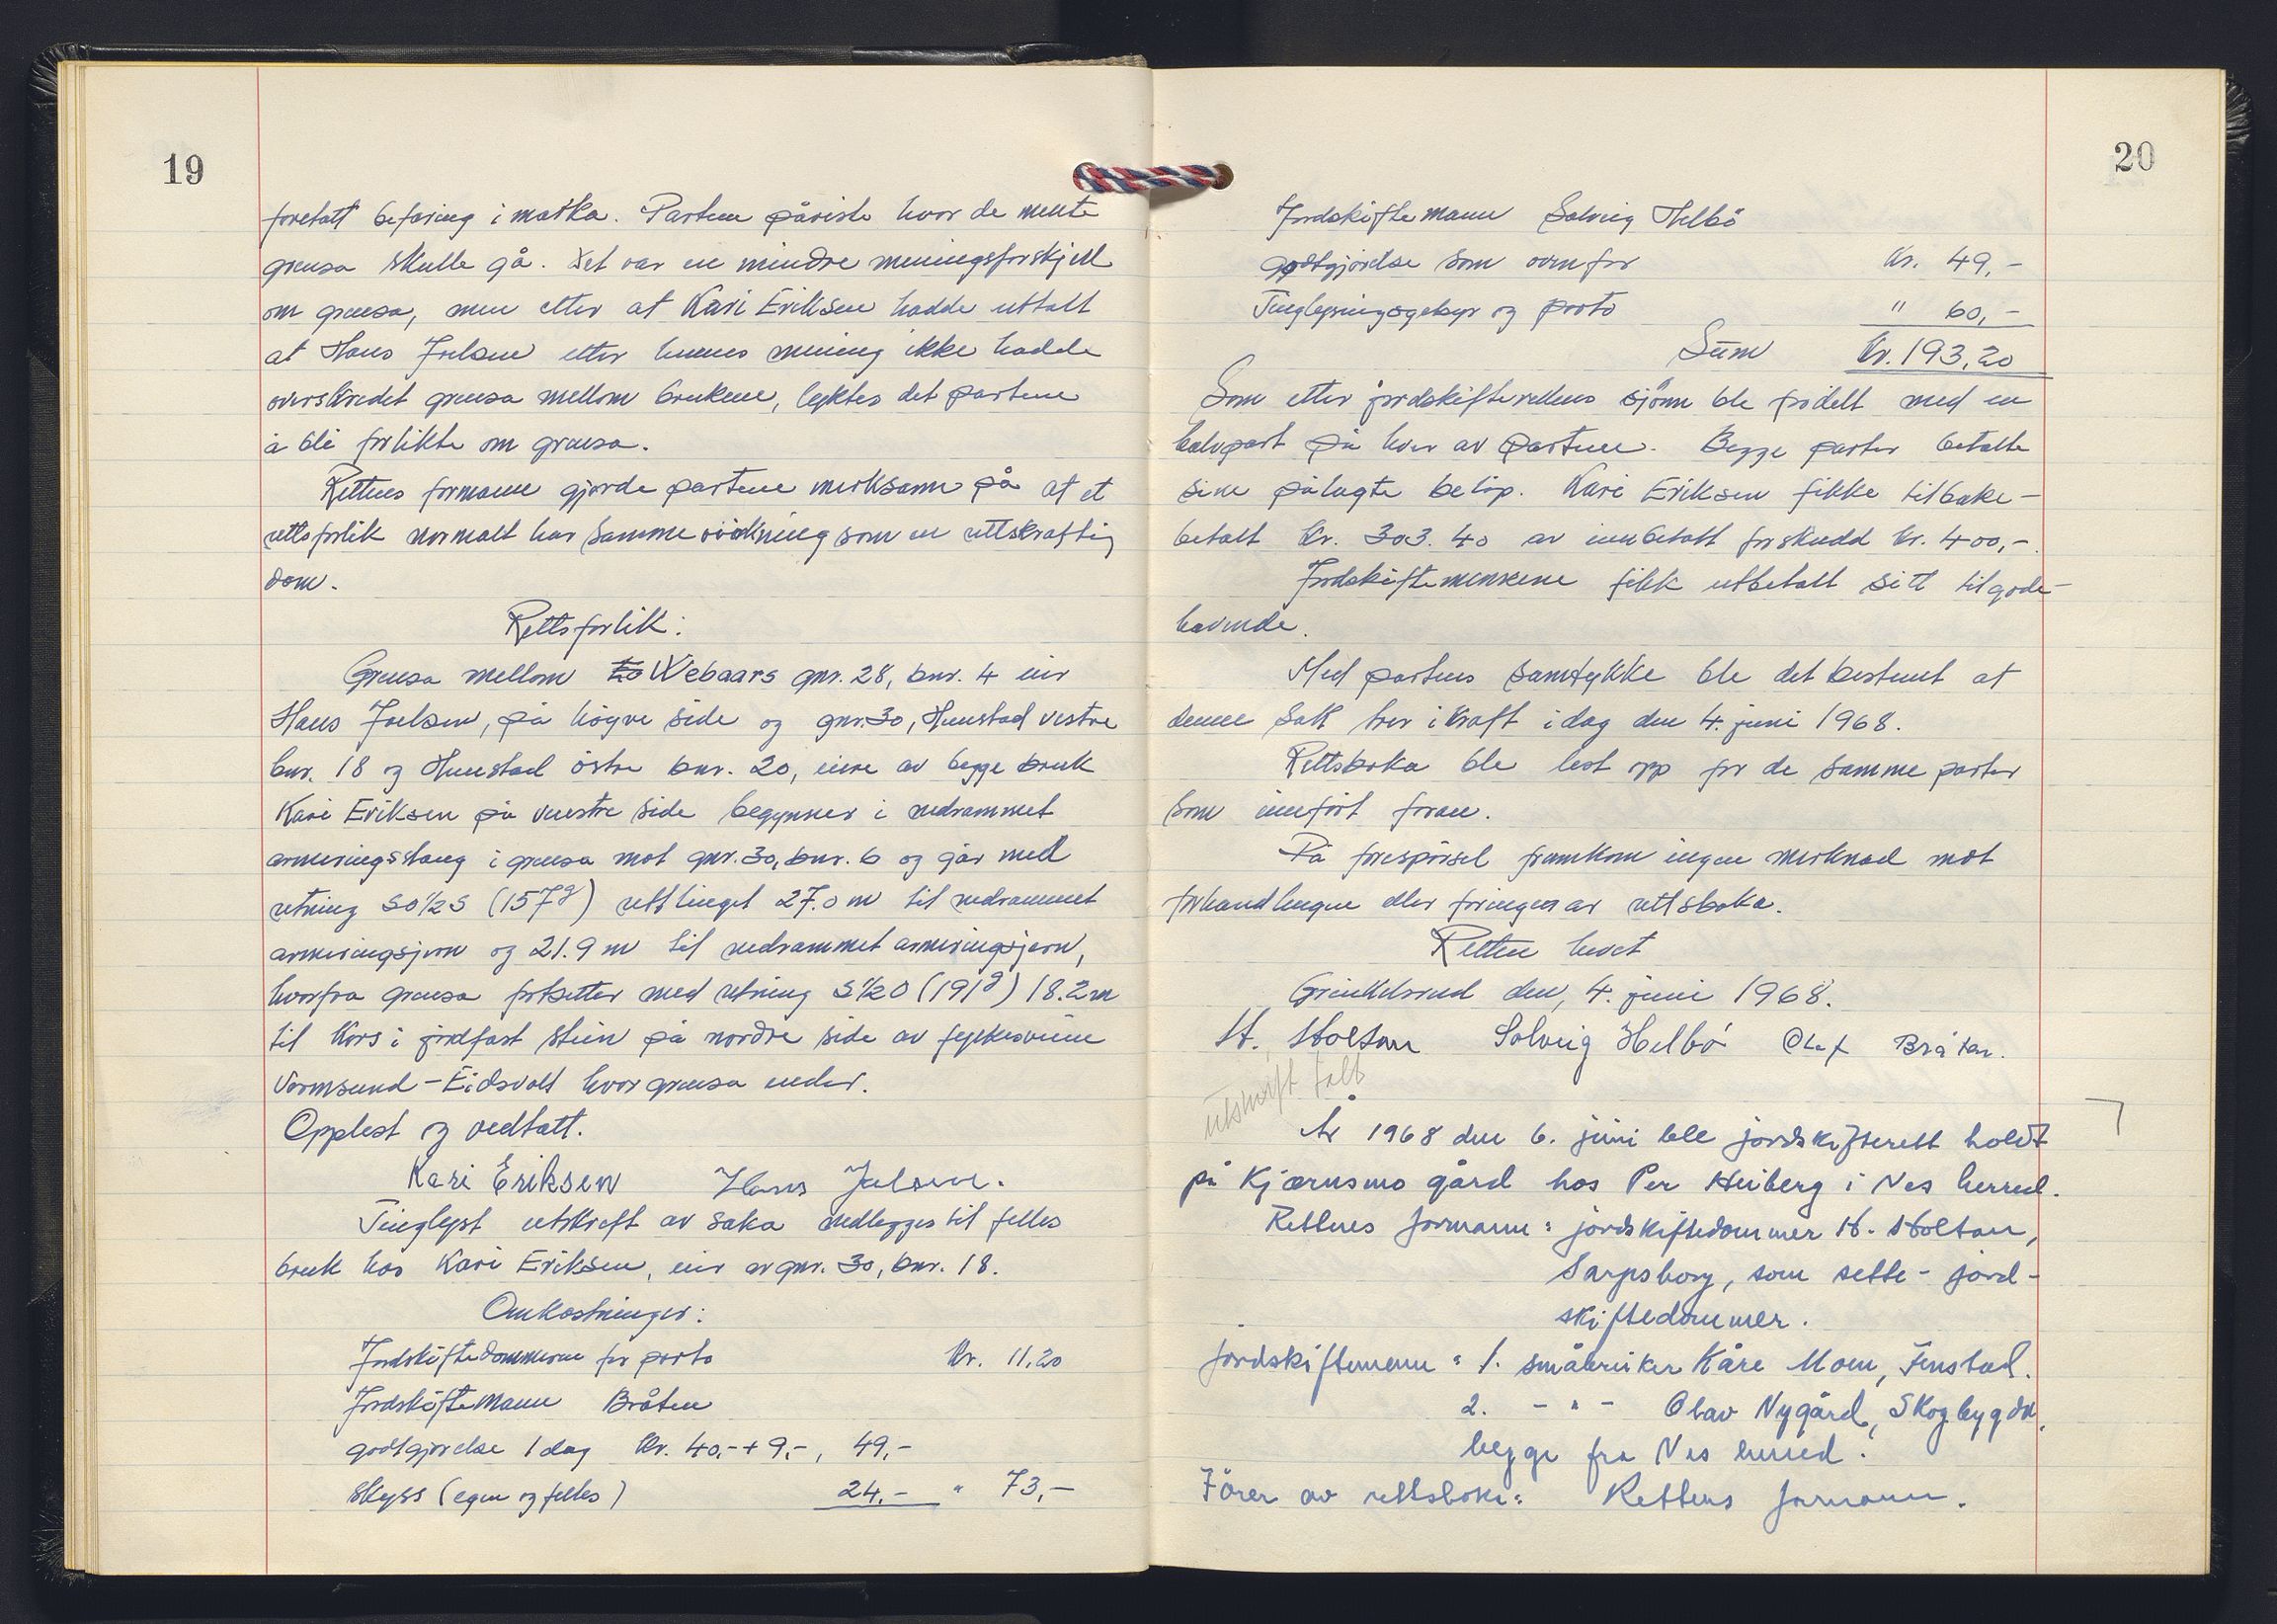 19
foretatt befaring i marka. Partene påviste hvor de mente
grensa skulle gå. Det var en mindre meningsforskjell
om grensa, men etter at Kari Eriksen hadde uttalt
at Hans Joelsen etter hennes mening ikke hadde
overskredet grensa mellom brukene, lyktes det partene
å bli forlikte om grensa.
Rettens formann gjorde partene merksam på at et
rettsforlik normalt har samme virkning som en rettskraftig
dom.
Rettsforlik:
Grensa mellom Webaars gnr. 28, bnr. 4 eier
Hans Joelsen, på høyre side og gnr. 30, Henstad vestre
bnr. 18 og Henstad østre bnr. 20, eiere av begge bruk
Kari Eriksen på venstre side begynner i nedrammet
armeringsstang i grensa mot gnr. 30, bnr. 6 og går med
retning SO½S (157g) rettlinget 27.0 m til nedrammet
armeringsjern og 21.9 m til nedrammet armeringsjern,
hvorfra grensa fortsetter med retning S½O (191g) 18.2 m
til kors i jordfast stein på nordre side av fylkesveien
Vormsund - Eidsvoll hvor grensa ender.
Opplest og vedtatt.
Kari Eriksen Hans Joelsen.
Tinglyst utskrift av saka nedlegges til felles
bruk hos Kari Eriksen, eier av gnr. 30, bnr. 18.
Omkostninger:
Jordskiftedommeren for porto Kr. 11,20
Jordskiftemann Bråten
godtgjørelse 1 dag Kr. 40,- + 9,-, 49,-
Skyss (egen og felles) 24,- " 73,-
20
Jordskiftemann Solveig Helbö
godtgjørelse som ovenfor Kr. 49,-
Tinglysningsgebyr og porto " 60,-
Sum Kr. 193,20
Som etter jordskifterettens skjønn ble fordelt med en
halvpart på hver av partene. Begge parter betalte
sine pålagte beløp. Kari Eriksen fikk tilbake-
betalt kr. 303.40 av innbetalt forskudd kr. 400,-.
Jordskiftemennene fikk utbetalt sitt tilgode-
havende.
Med partenes samtykke ble det bestemt at
denne sak trer i kraft i dag den 4. juni 1968.
Rettsboka ble lest opp for de samme parter
som innført foran.
På forespørsel framkom ingen merknad mot
forhandlingene eller føringen av rettsboka.
Retten hevet
Grinkelsrud den, 4. juni 1968.
H. Holtan Solveig Helbö Olaf Bråten.
utskrift falt
År 1968 den 6. juni ble jordskifterett holdt
på Kjærnsmo gård hos Per Heiberg i Nes herred.
Rettens formann: jordskiftedommer H. Holtan,
Sarpsborg, som sette-jord-
skiftedommer.
Jordskiftemenn: 1. småbruker Kåre Moen, Fenstad.
2. - " - Olav Nygård, Skogbygda,
begge fra Nes herred.
Fører av rettsboka: Rettens formann.